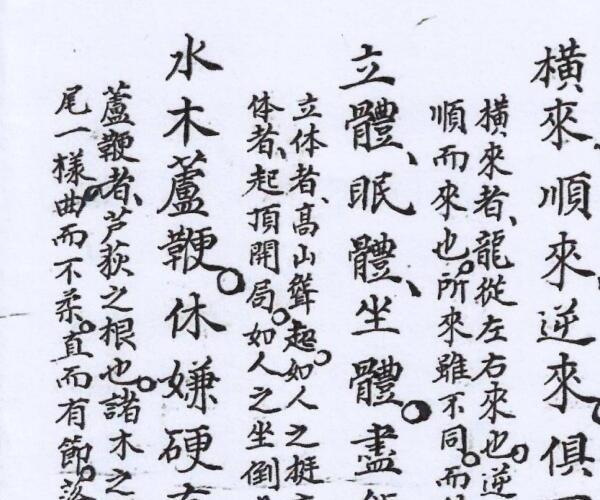 橫來、順來逆來俱
橫來者、龍從左右來也。逆
順而來也。所來雖不同。而
立體、眠體、坐體。盡
立体者、高山聳起。如人之挺
体者、起頂開局。如人之坐倒
水木蘆鞭。休嫌硬
蘆鞭者、芦荻之根也。諸木之
尾一樣。曲而不柔。直而有節。落